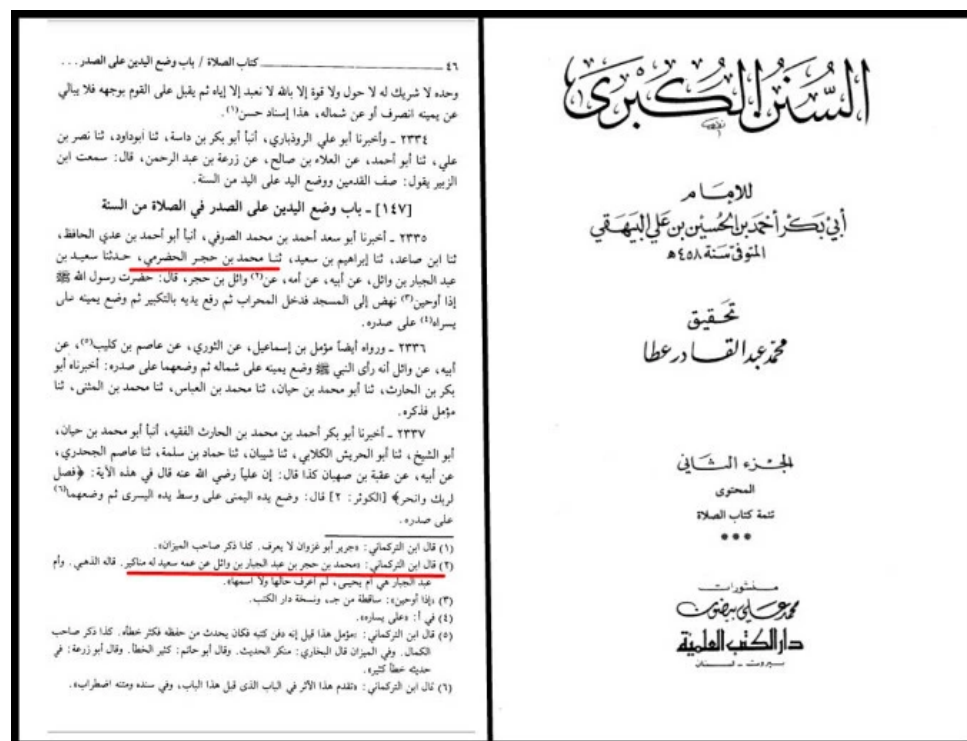 ٤٦ ــــــــــ كتاب الصلاة / باب وضع اليدين على الصدر . . .
وحده لا شريك له لا حول ولا قوة إلا بالله لا نعبد إلا إياه ثم يقبل على القوم بوجهه فلا يبالي
عن يمينه انصرف أو عن شماله، هذا إسناد حسن(١).
٢٣٣٤ ـ وأخبرنا أبو علي الروذباري، أنبأ أبو بكر بن داسة، ثنا أبوداود، ثنا نصر بن
علي، ثنا أبو أحمد، عن العلاء بن صالح، عن زرعة بن عبد الرحمن، قال: سمعت ابن
الزبير يقول: صف القدمين ووضع اليد على اليد من السنة.
[١٤٧] ـ باب وضع اليدين على الصدر في الصلاة من السنة
٢٣٣٥ ـ أخبرنا أبو سعد أحمد بن محمد الصوفي، أنبأ أبو أحمد بن عدي الحافظ،
ثنا ابن صاعد، ثنا إبراهيم بن سعيد، ثنا محمد بن حجر الحضرمي، حدثنا سعيد بن
عبد الجبار بن وائل، عن أبيه، عن أمه، عن(٢) وائل بن حجر، قال: حضرت رسول الله ﷺ
إذا أوحين(٣) نهض إلى المسجد فدخل المحراب ثم رفع يديه بالتكبير ثم وضع يمينه على
يسراه(٤) على صدره.
٢٣٣٦ ـ ورواه أيضاً مؤمل بن إسماعيل، عن الثوري، عن عاصم بن كليب(٥)، عن
أبيه، عن وائل أنه رأى النبي ﷺ وضع يمينه على شماله ثم وضعهما على صدره: أخبرناه أبو
بكر بن الحارث، ثنا أبو محمد بن حيان، ثنا محمد بن العباس، ثنا محمد بن المثنى، ثنا
مؤمل فذكره.
٢٣٣٧ ـ أخبرنا أبو بكر أحمد بن محمد بن الحارث الفقيه، أنبأ أبو محمد بن حيان،
أبو الشيخ، ثنا أبو الحريش الكلابي، ثنا شيبان، ثنا حماد بن سلمة، ثنا عاصم الجحدري،
عن أبيه، عن عقبة بن صهبان كذا قال: إن علياً رضي الله عنه قال في هذه الآية: ﴿فصل
لربك وانحر﴾ [الكوثر: ٢] قال: وضع يده اليمنى على وسط يده اليسرى ثم وضعهما(٦)
على صدره.
(١) قال ابن التركماني: «جرير أبو غزوان لا يعرف. كذا ذكر صاحب الميزان».
(٢) قال ابن التركماني: «محمد بن حجر بن عبد الجبار بن وائل عن عمه سعيد له مناكير. قاله الذهبي. وأم
عبد الجبار هي أم يحيى، لم أعرف حالها ولا اسمها».
(٣) «إذا أوحين»: ساقطة من جـ، ونسخة دار الكتب.
(٤) في أ: «على يساره».
(٥) قال ابن التركماني: «مؤمل هذا قيل إنه دفن كتبه فكان يحدث من حفظه فكثر خطأه. كذا ذكر صاحب
الكمال. وفي الميزان قال البخاري: منكر الحديث. وقال أبو حاتم: كثير الخطأ. وقال أبو زرعة: في
حديثه خطأ كثير».
(٦) قال ابن التركماني: «تقدم هذا الأثر في الباب الذى قبل هذا الباب، وفي سنده ومتنه اضطراب».
السُّنَنُ الكُبْرَىٰ
للإمَام
أَبي بَكر أَحْمَد بن الحُسَين بن عَلي البَيهَقي
المتوفى سَنة ٤٥٨ هـ
تحقيق
محمد عبد القادر عطا
الجزء الثاني
المحتوى
تتمة كتاب الصلاة
منشورات
محمد علي بيضون
دار الكتب العلمية
بيروت ـ لبنان